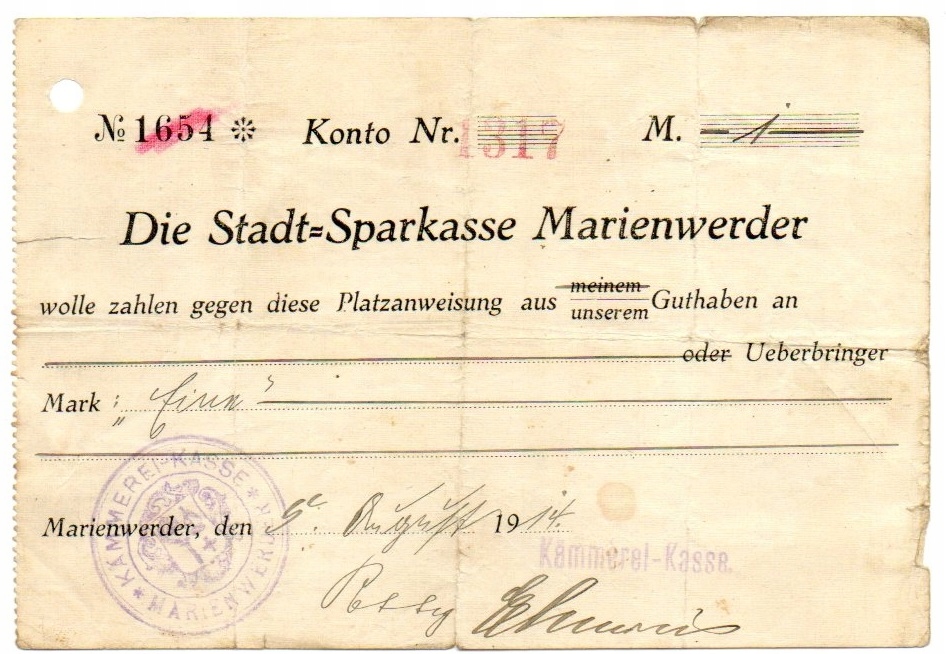 № 1654 ※ Konto Nr. 1317 M. 1
Die Stadt=Sparkasse Marienwerder
wolle zahlen gegen diese Platzanweisung aus meinem unserem Guthaben an
oder Ueberbringer
Mark : „Eine“
Marienwerder, den 5. August 1914.
KÄMMEREI-KASSE * MARIENWERDER *
Kämmerei-Kasse.